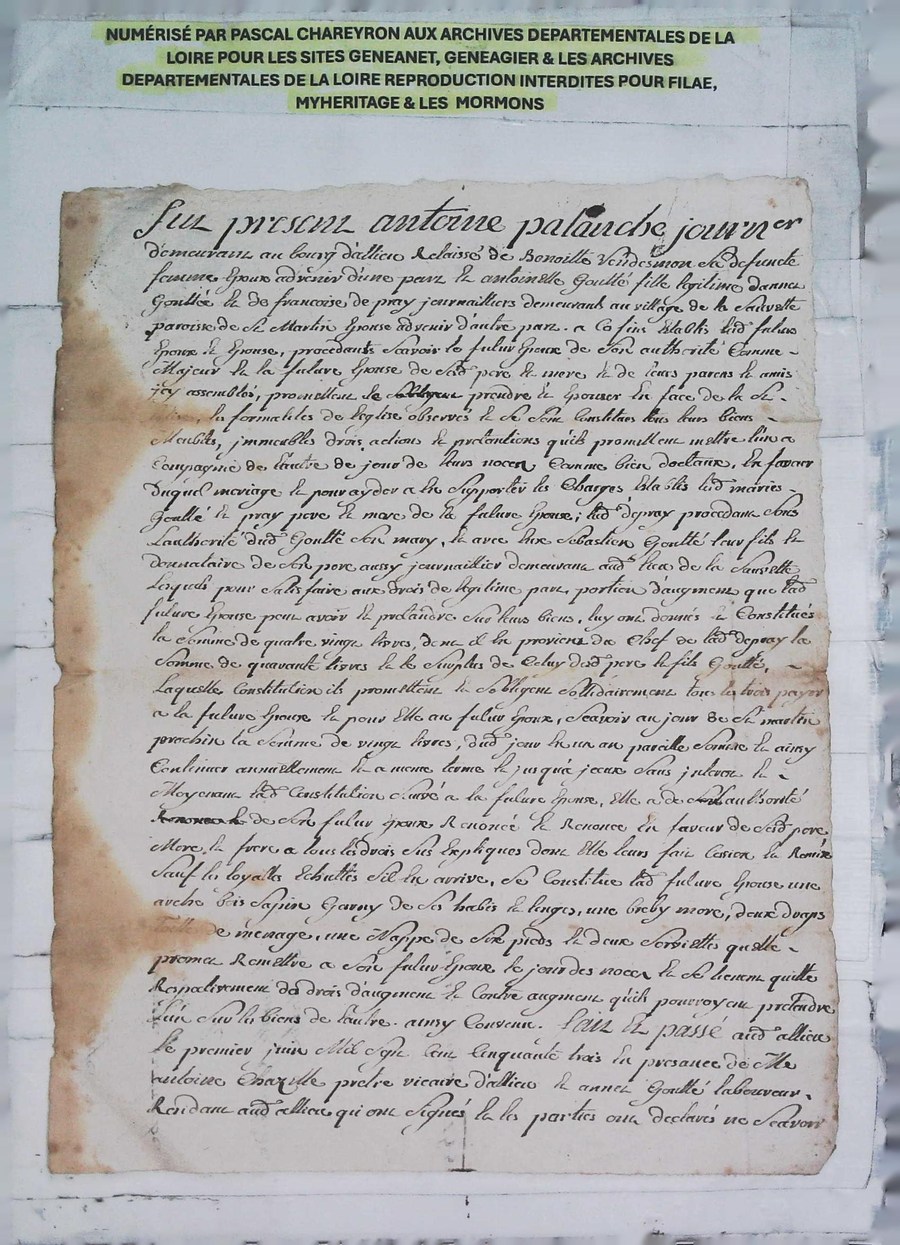 NUMÉRISÉ PAR PASCAL CHAREYRON AUX ARCHIVES DEPARTEMENTALES DE LA
LOIRE POUR LES SITES GENEANET, GENEAGIER & LES ARCHIVES
DEPARTEMENTALES DE LA LOIRE REPRODUCTION INTERDITES POUR FILAE,
MYHERITAGE & LES MORMONS
fut present antoine palanche journer
demeurant au bourg d'allieu Relaissé de Benoitte Vendesmon sa defuncte
femme Epoux advenir d'une part et antoinette Goutté fille legitime d'annet
Gouttée et de francoise de pray journalliers demeurant au village de la Sauvette
paroisse de St Martin Epouse advenir d'autre part. a Ce fins Etablis led futur
Epoux et Epouse, procedants Scavoir le futur Epoux de Son authorité Comme
Majeur et la future Epouse de Sesd pere et mere et de leurs parens et amis
jcy assemblés, promettent de prendre et Epouser en face de la Ste
les formalités de l'eglise observés et Se Sont Constitues tous leurs biens
Meubles, jmmeubles drois actions et pretentions qu'ils promettent mettre l'un a
Compagnie de l'autre de jour de leurs noces Comme bien doctaux, En faveur
Duquel mariage et pour ayder a En Supporter les Charges Etablis lesd mariés
Goutté et pray pere et mere de la future Epouse; lad depray procedant Sous
L'authorité dud Goutté Son mary, et avec Eux Sebastien Goutté leur fils et
donnataire de Son pere aussy journaillier demeurant aud lieu de la Sauvette
Lesquels pour Satisfaire aux drois de legitime part portion d'augment que lad
future Epouse peut avoir et pretendre Sur leurs biens, luy ont donnés et Constitués
la Somme de quatre vingt livres, dont il En provient du Chef de lad depray la
Somme de quarante livres et le Surplus de Celuy desd pere et fils Goutté,
Laquelle Constitution ils promettent et S'obligent Sollidairement tous les trois payer
a la future Epouse et pour Elle au futur Epoux, Scavoir au jour de St martin
prochin la Somme de vingt livres, dud jour En un an pareille Somme et ainsy
Continuer annuellement et a meme terme et jusqua jceux Sans jnteret et
Moyenant lad Constitution a la future Epouse, Elle a de authorité
de Son futur Epoux Renoncé et Renonce En faveur de Sesd pere
Mere et frere a tous les drois Sus Expliqués dont Elle leurs fait Cession et Remise
Sauf les loyalles Echuttes S'il En arrive, Se Constitue lad future Epouse une
arche bois Sapin Garny de Ses habis et linges, une breby mere, deux draps
toille de menage, une Nappe de Six pieds et deux Serviette quelle
promet Remettre a Son futur Epoux le jour des noces et Se tienent quitte
Respativement des drois d'augment et Contre augment qu'ils pourroyent pretendre
L'un Sur les biens de l'autre. ainsy Convenu. fait Et passé aud allieu
Le premier juin Mil Sept Cent Cinquante trois En presance de Me
antoine Chazelle pretre vicaire d'allieu et annet Goutté laboureur
Rendant aud allieu qui ont Signés et les parties ont declarés ne Scavoir